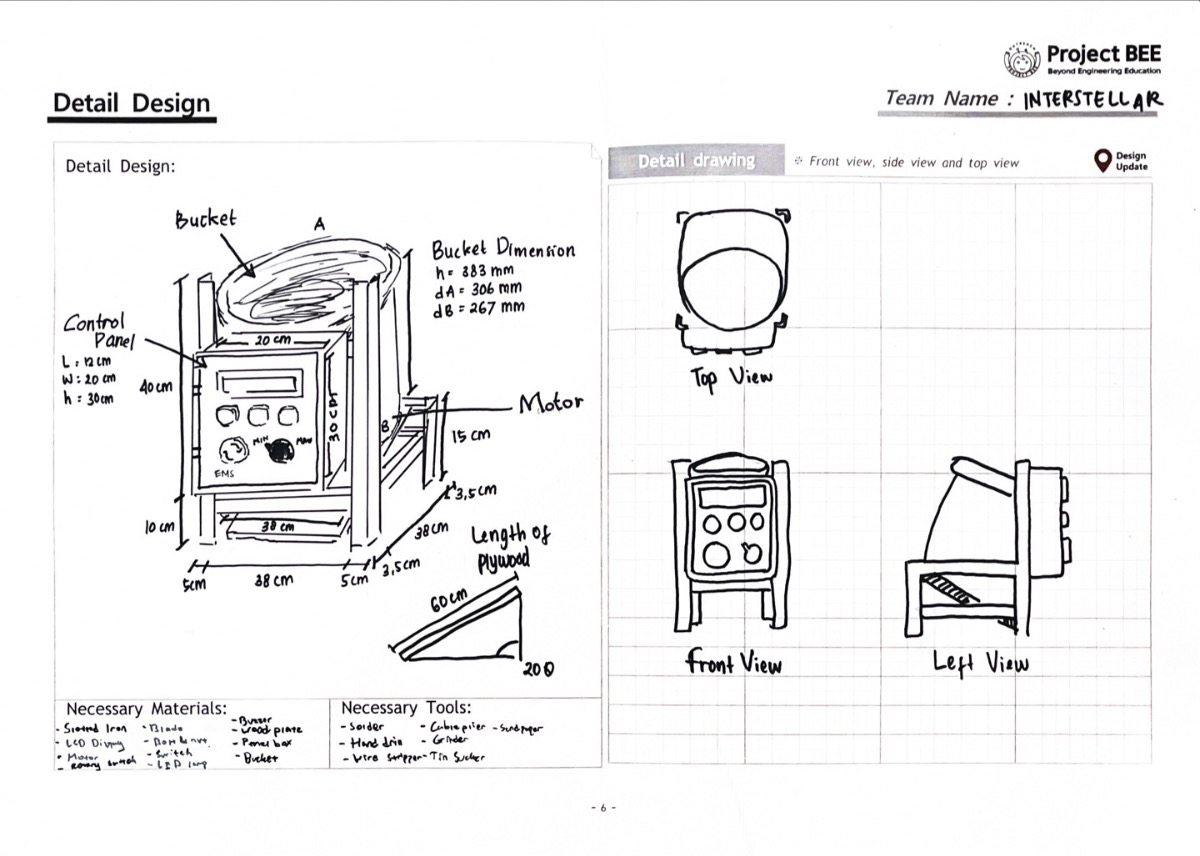 Project BEE
Beyond Engineering Education
Detail Design
Team Name : INTERSTELLAR
Detail Design:
Bucket
A
Bucket Dimension
h = 383 mm
dA = 306 mm
dB = 267 mm
Control
Panel
L : 12 cm
W : 20 cm
h : 30cm
20 cm
40cm
30 cm
MIN
MAX
EMS
B
Motor
15 cm
3,5cm
10 cm
38 cm
38cm
3,5cm
5cm
38 cm
5cm
Length of
plywood
60 cm
20θ
Necessary Materials:
- Sloted Iron
- LCD Display
- Motor
- Rotary switch
- Blade
- Bolt & nut
- Switch
- LED lamp
- Buzzer
- wood plate
- Panel box
- Bucket
Necessary Tools:
- Solder
- Hand drill
- Wire stripper
- Cable plier
- Grinder
- Tin Sucker
- Sand paper
Detail drawing
※ Front view, side view and top view
Design
Update
Top View
Front View
Left View
- 6 -